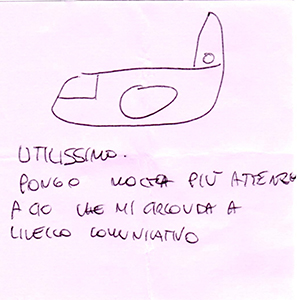 UTILISSIMO.
PONGO MOLTA PIÙ ATTENZ
A CIÒ CHE MI CIRCONDA A
LIVELLO COMUNICATIVO